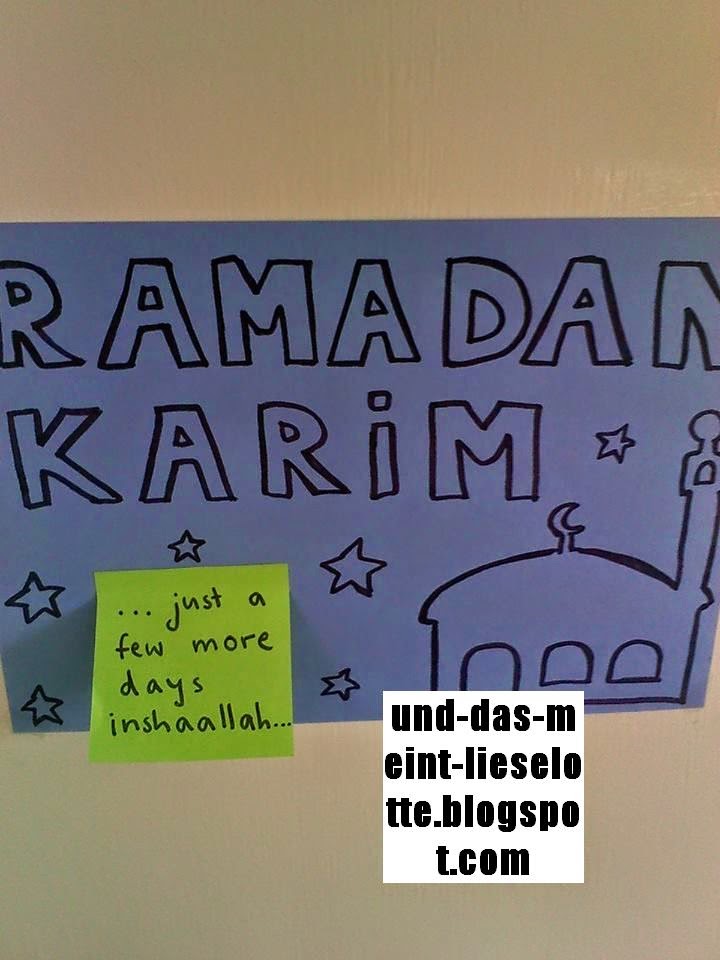 RAMADAN
KARiM
... just a
few more
days
inshaallah...
und-das-m
eint-lieselo
tte.blogspo
t.com